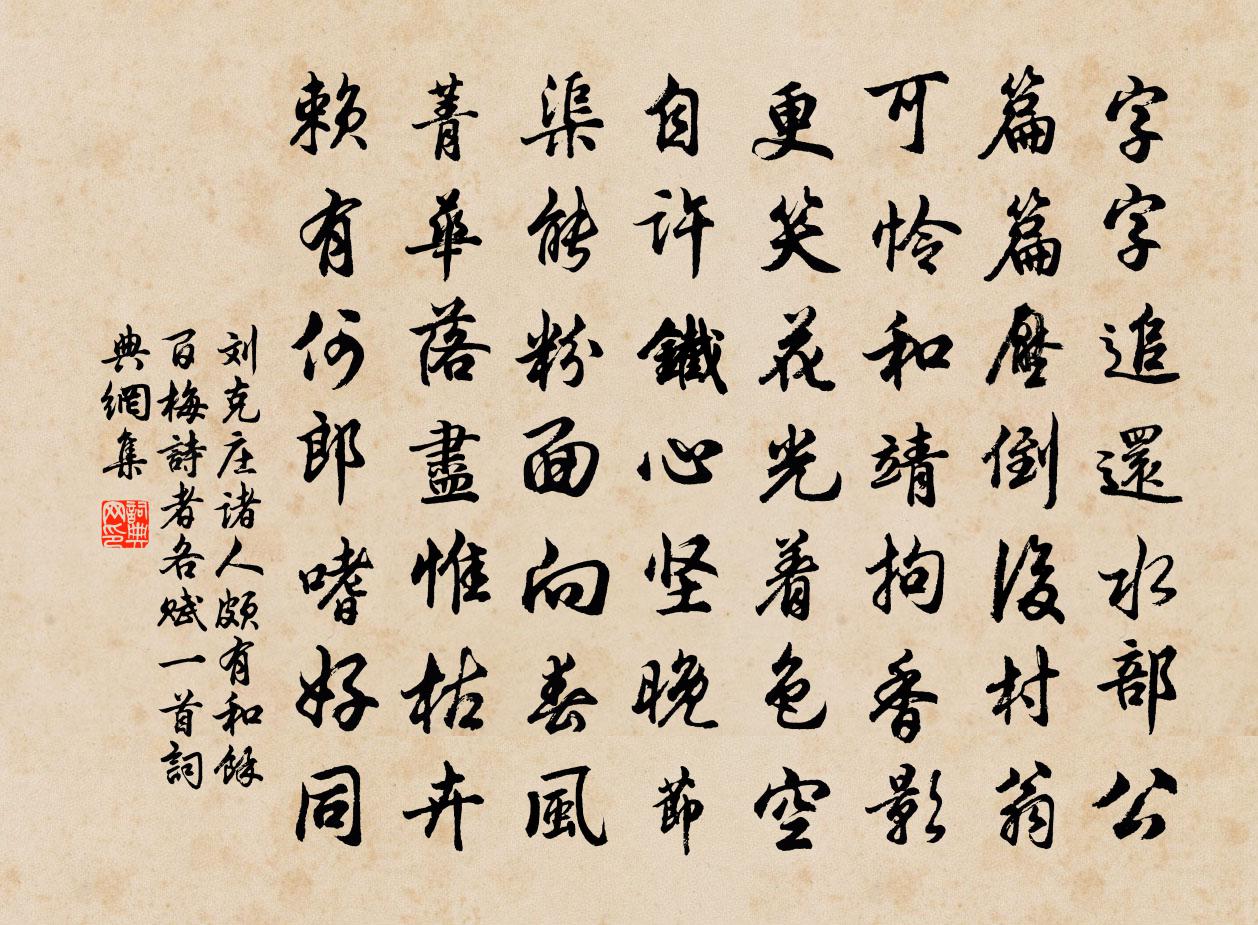 字字追還水部公
篇篇壓倒後村翁
可怜和靖拘香影
更笑花光着色空
自許鐵心坚晚節
渠能粉面向春風
菁華落盡惟枯卉
賴有何郎嗜好同
刘克庄诸人頗有和餘
百梅詩者各赋一首詞
典網集
詞典网印